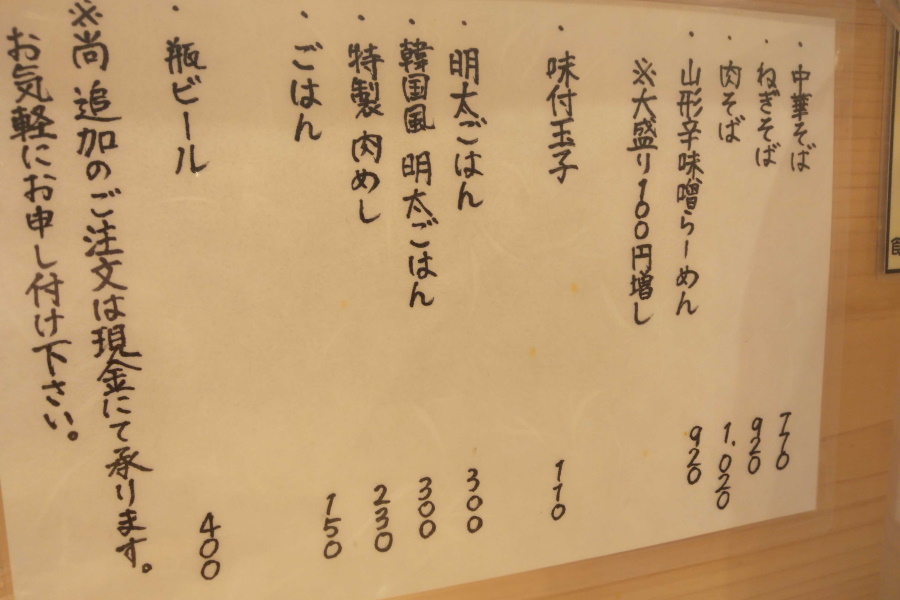 ・中華そば 770
・ねぎそば 920
・肉そば 1,020
・山形辛味噌らーめん 920
※大盛り100円増し
・味付玉子 110
・明太ごはん 300
・韓国風 明太ごはん 300
・特製 肉めし 230
・ごはん 150
・瓶ビール 400
※尚 追加のご注文は現金にて承ります。
お気軽にお申し付け下さい。